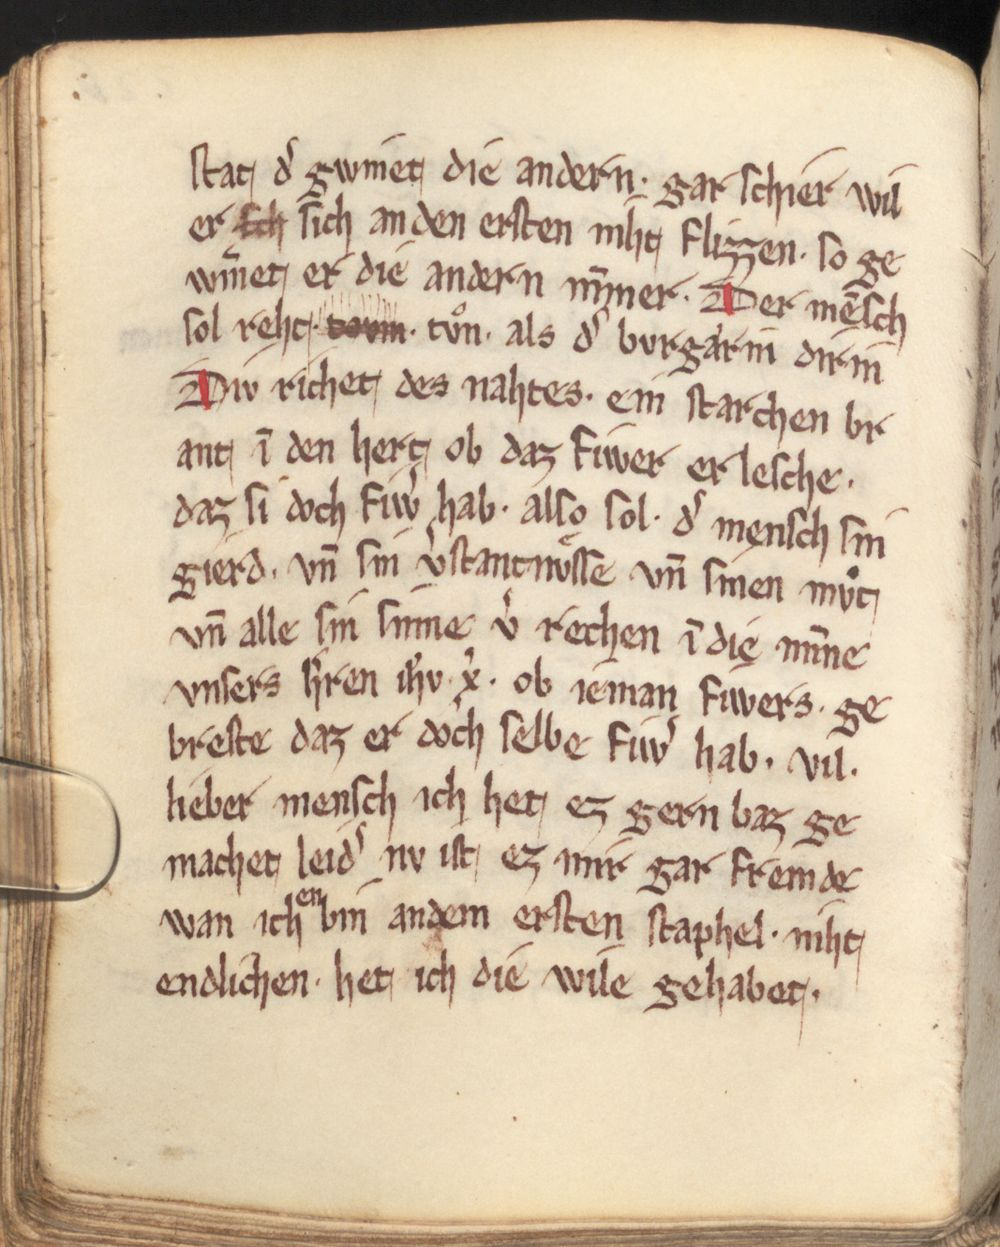 stat dˀ gwinet die andern· gar schier wil
er sich an den ersten niht flizzen· so ge
wīnet er die andern nīmer· Der mēsch
sol reht· tuͦn· als dˀ burgarin dirin
Div richet des nahtes· ein starchen br
ant ī den hert ob daz fiwer er lesche·
daz si doch fiwˀ hab· also sol· dˀ mensch sin
gierd· vn̄ sin vˀstantnvͤsse vn̄ sinen mvͦt
vn̄ alle sin sinne vˀ rechen ī die mīne
vnsers hˀren ihˀv xˀ· ob ieman fiwers· ge
breste daz er doch selbe fiwˀ hab· vil·
lieber mensch ich het ez gern baz ge
machet leidˀ nv ist ez mir gar fremde
wan ich en bin an dem ersten staphel· niht
endlichen· het ich die wile gehabet·